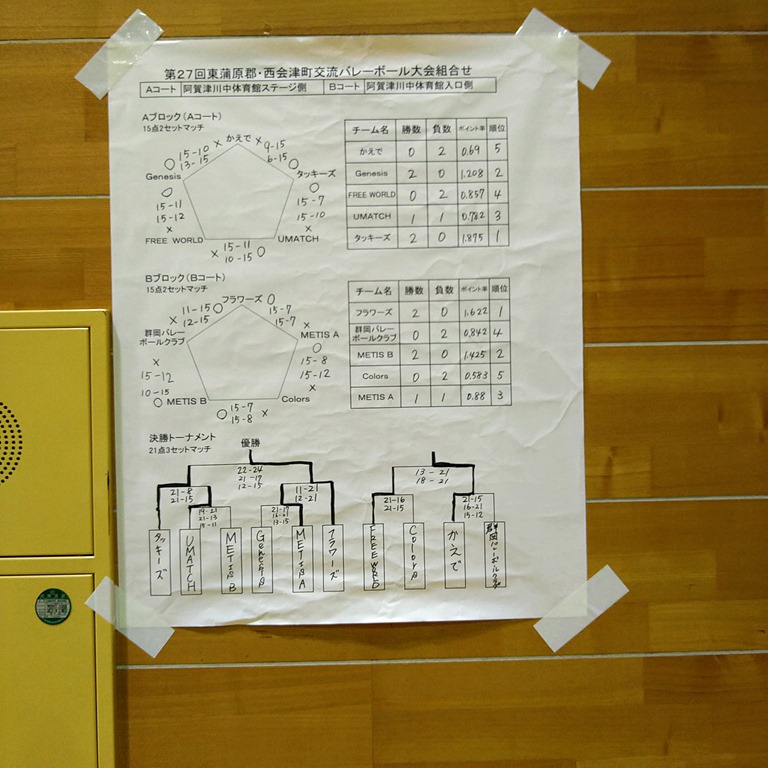 第27回東蒲原郡・西会津町交流バレーボール大会組合せ
Aコート 阿賀津川中体育館ステージ側 Bコート 阿賀津川中体育館入口側
Aブロック(Aコート)
15点2セットマッチ
かえで
○ 15-10 × × 9-15
13-15 6-15 ○
Genesis タッキーズ
○ ○
15-11 15-7
15-12 15-10
× ×
FREE WORLD UMATCH
× 15-11 ○
10-15
チーム名 勝数 負数 ポイント率 順位
かえで 0 2 0.69 5
Genesis 2 0 1.208 2
FREE WORLD 0 2 0.857 4
UMATCH 1 1 0.782 3
タッキーズ 2 0 1.875 1
Bブロック(Bコート)
15点2セットマッチ
フラワーズ
× 11-15 ○ ○ 15-7
12-15 15-7 ×
群岡バレーボールクラブ METIS A
× ○
15-12 15-8
10-15 15-12
○ ×
METIS B Colors
○ 15-7 ×
15-8
チーム名 勝数 負数 ポイント率 順位
フラワーズ 2 0 1.622 1
群岡バレーボールクラブ 0 2 0.842 4
METIS B 2 0 1.425 2
Colors 0 2 0.583 5
METIS A 1 1 0.88 3
決勝トーナメント
21点3セットマッチ
優勝
22-24
21-17
12-15
13-21
18-21
21-8
21-15
11-21
12-21
19-21
21-13
15-11
21-17
16-21
13-15
21-16
21-15
21-15
16-21
15-12
タッキーズ
UMATCH
METIS B
Genesis
METIS A
フラワーズ
FREE WRD
Colors
かえで
群岡バレーボールクラブ